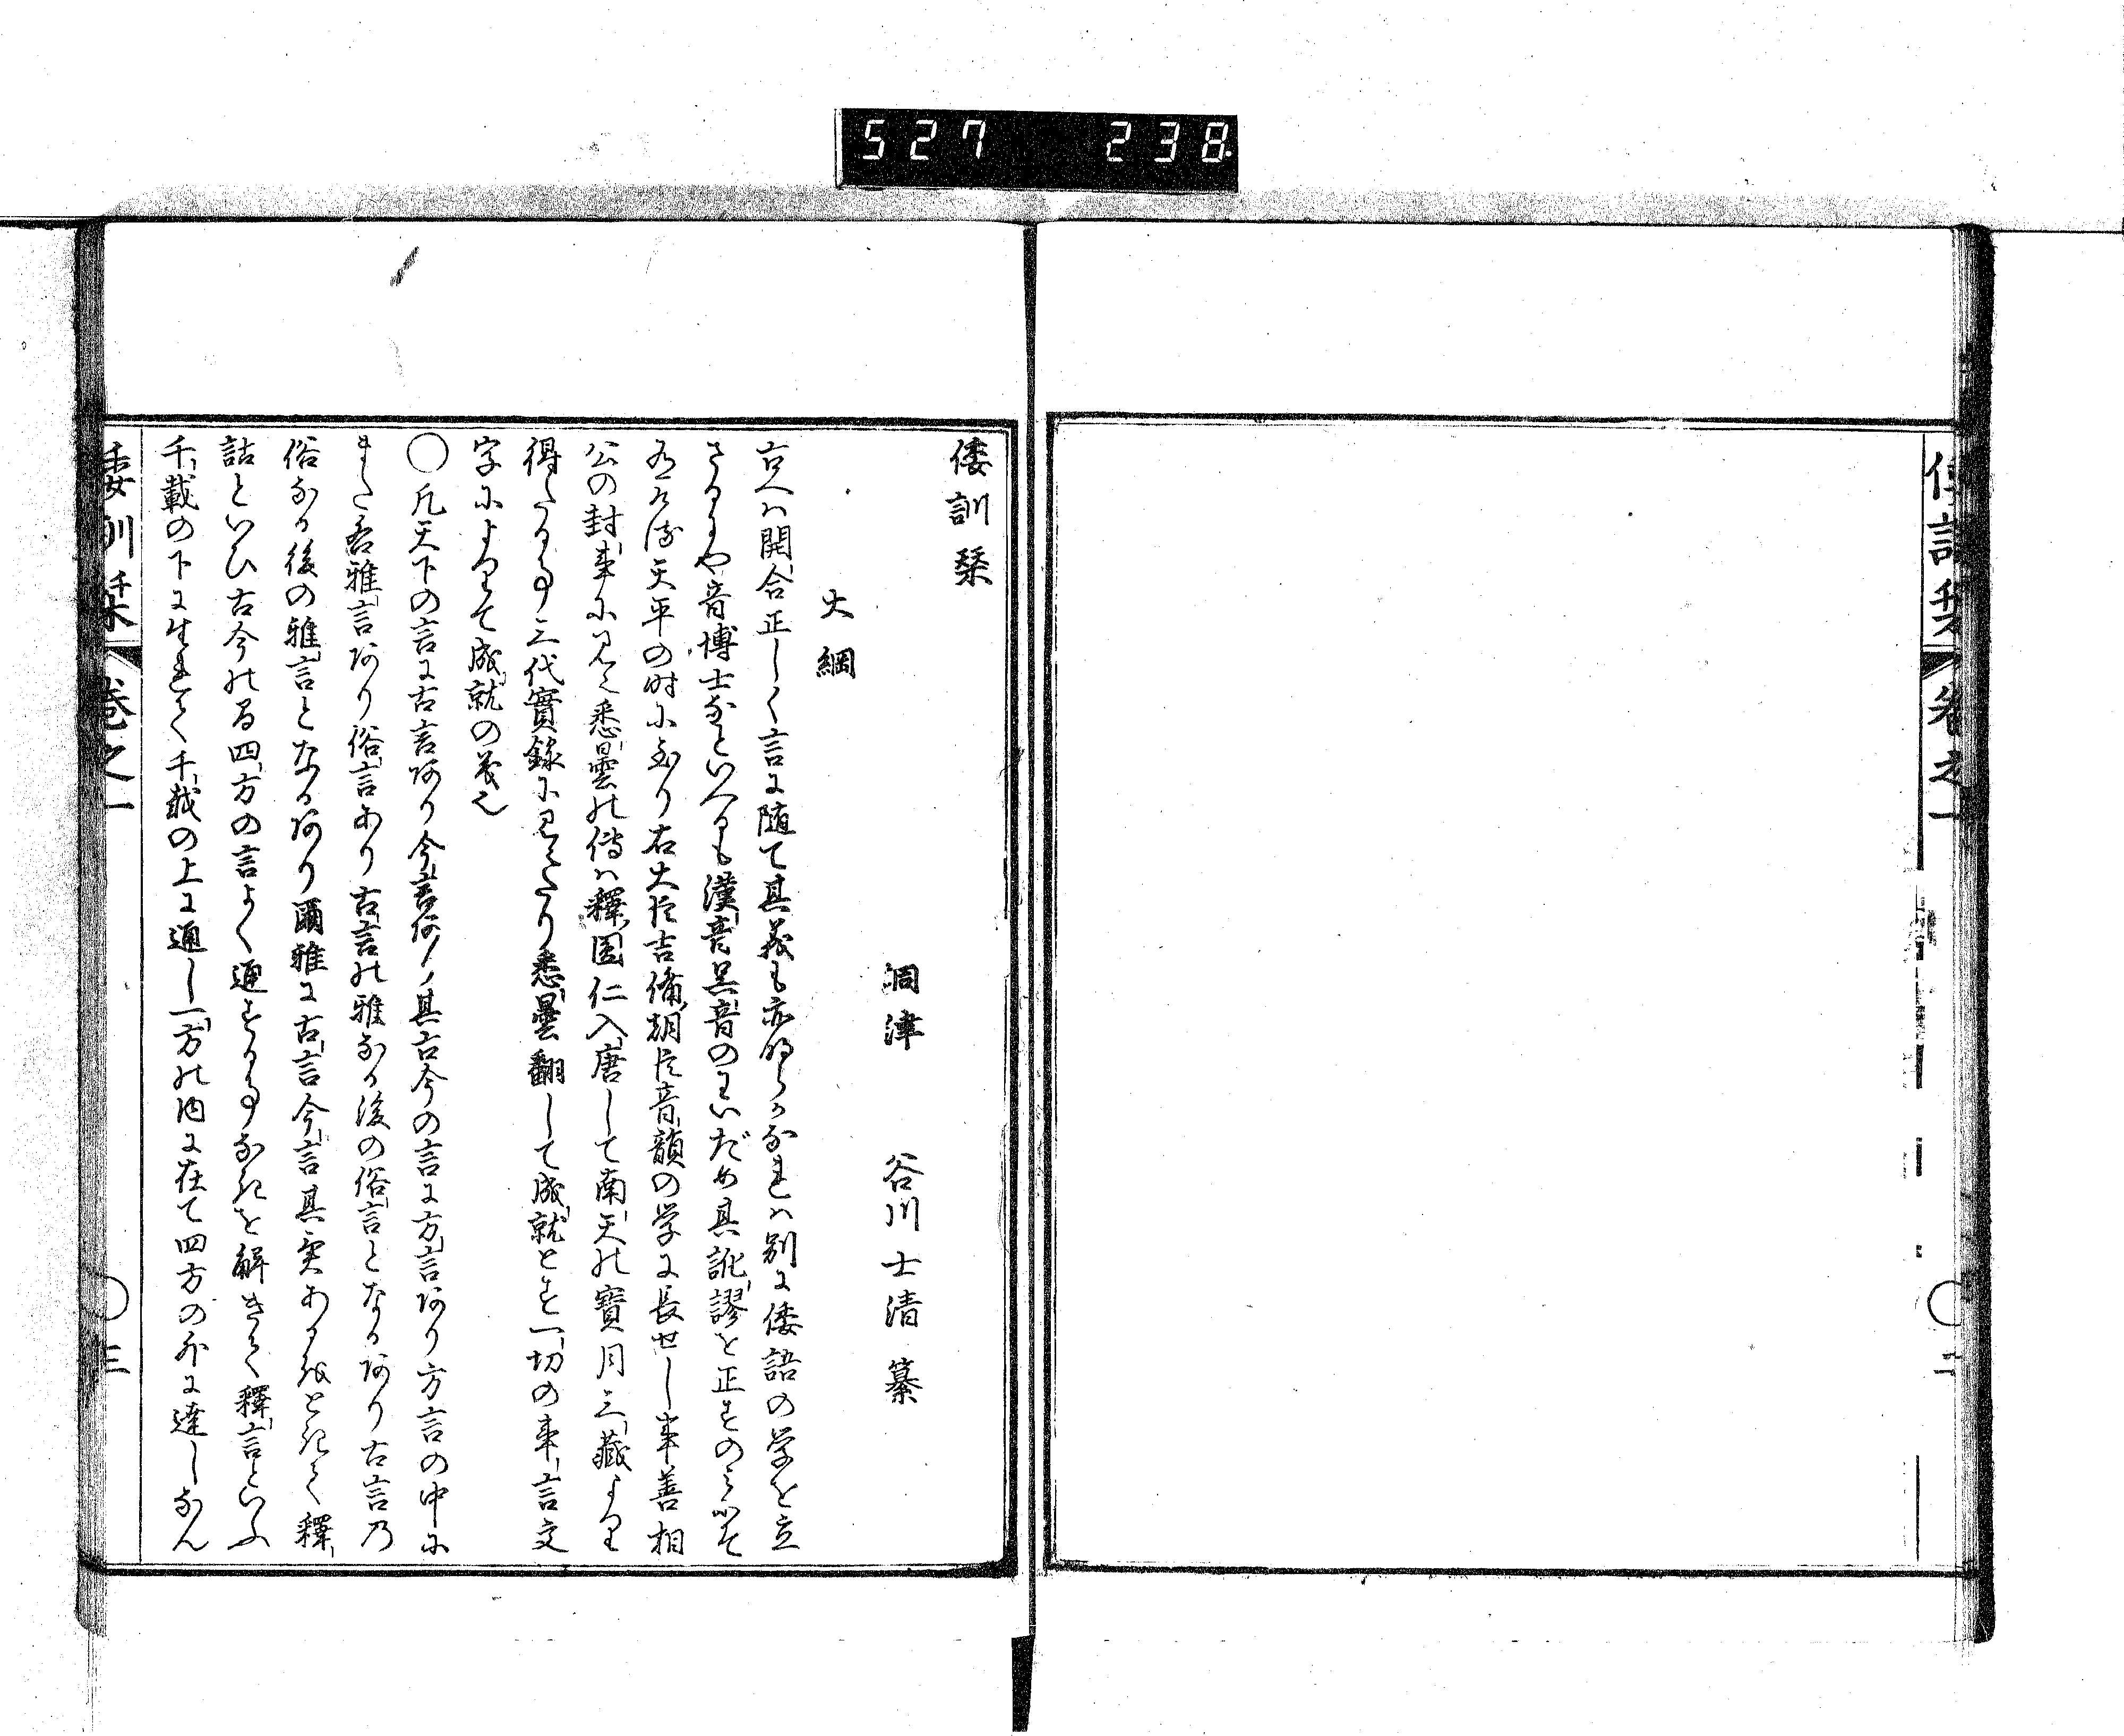 527 238
倭訓栞 巻之一 〇二
倭訓栞
洞津 谷川士清纂
大綱
古へハ開合正しく言に随て其義も亦明らかなれハ別に倭語の学を立
さるにや音博士なといへるも漢音呉音のわいだめ其訛謬を正すのミにて
天平の時に至り右大臣吉備朝臣音韻の学に長せし事善相
公の封事に見え悉曇の傳ハ釋圓仁入唐して南天の寶月三藏より
得たる事三代實録に見えたり悉曇翻して成就とす一切の事言文
字によりて成就の義也
〇凡天下の言に古言あり今言あり其古今の言に方言あり方言の中に
また吾雅言あり俗言あり古言の雅なる後の俗言となるあり古言乃
俗なる後の雅言となるあり爾雅に古言今言其実あるをときて釋
詁といひ古今の間四方の言よく通せさる事なきを解きて釋言といふ
千載の下に生れて千載の上に通し一方の内に在て四方の外に達しなん
倭訓栞 巻之一 〇三